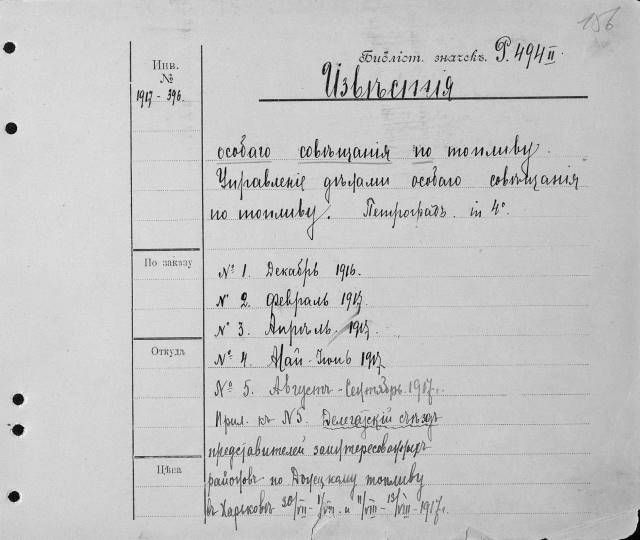 156
Библіот. значекъ. Р. 494 II.
Инв.
№
1917 - 396.
Извѣстія
особаго совѣщанія по топливу.
Управленіе дѣлами особаго совѣщанія
по топливу. Петроградъ. in 4°.
По заказу
№ 1. Декабрь 1916.
№ 2. Февраль 1917.
№ 3. Апрѣль 1917.
Откуда
№ 4. Май - Іюнь 1917
№ 5. Августъ - Сентябрь 1917 г.
Прил. къ № 5. Делегатскій съѣздъ
представителей заинтересованныхъ
Цѣна
районовъ по Донецкому топливу
въ Харьковѣ 30/VII - 1/VIII и 11/VIII - 13/VIII - 1917 г.